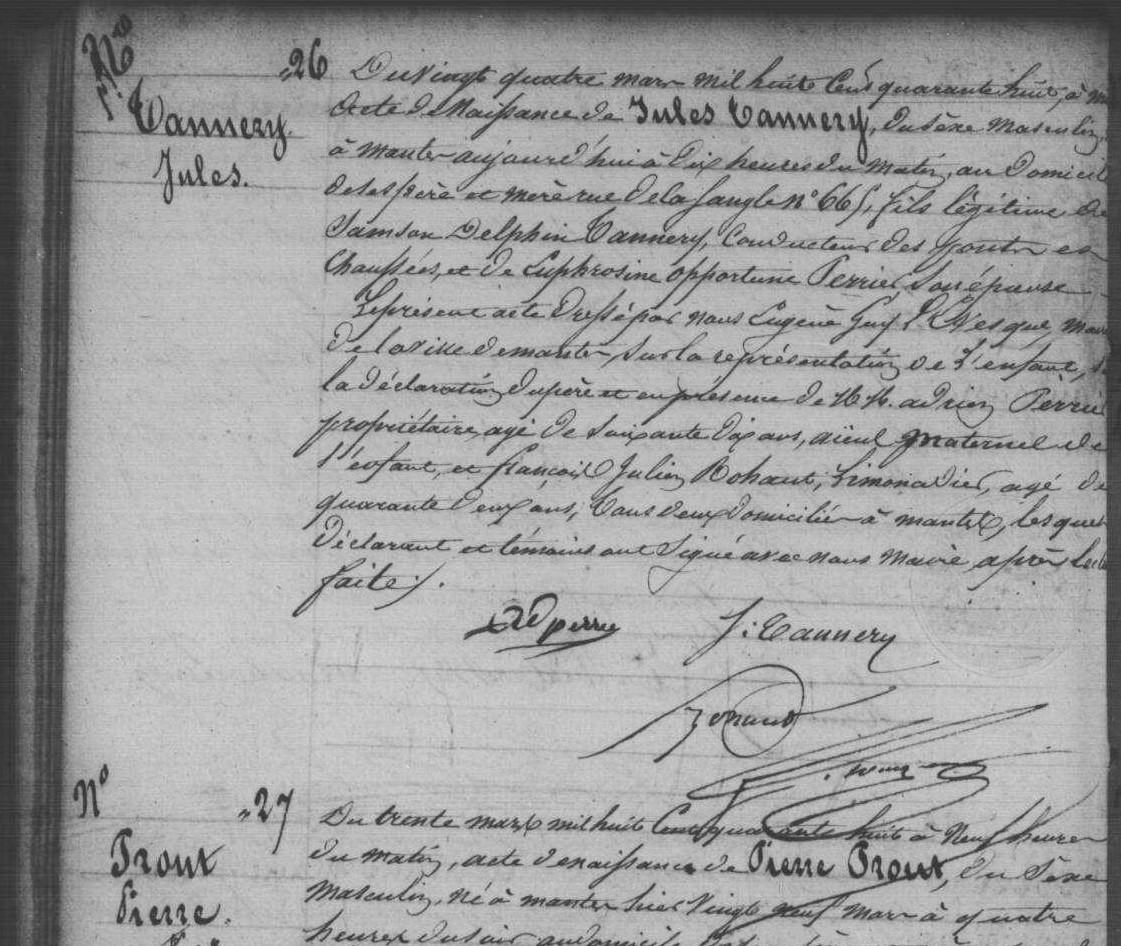 Nº 26
Tannery
Jules.
Du Vingt quatre mars mil huit Cent quarante huit, à
Acte de Naissance de Jules Tannery, du sèxe Masculin,
à mantes aujourd'hui à Dix heures du matin, au Domicil
de ses père et mère rue de la Sangle Nº 665, fils légitime de
Samson Delphin Tannery, Conducteur des ponts et
Chaussées, et de Euphrosine opportune Perrier son épouse
Le présent acte dressé par nous Eugène Guy L'Evesque, maire
de la ville de mantes, sur la représentation de L'enfant,
la déclaration du père et en présence de MM. adrien Perrier
propriétaire, agé de Soixante Dix ans, aïeul maternel de
l'enfant, et françois Julien Bohant, Limonadier, agé de
quarante Deux ans, tous deux Domiciliés à mantes, lesquels
Déclarant et témoins ont Signé avec nous maire, après lec
faite ./.
Ad perrier
J: Tannery
Nº 27
Prout
Pierre.
Du trente mars mil huit Cent quarante huit à Neuf heures
du matin, acte de naissance de Pierre Prout, du Sèxe
Masculin, né à mantes hier Vingt neuf mars à quatre
heures du soir au domicile